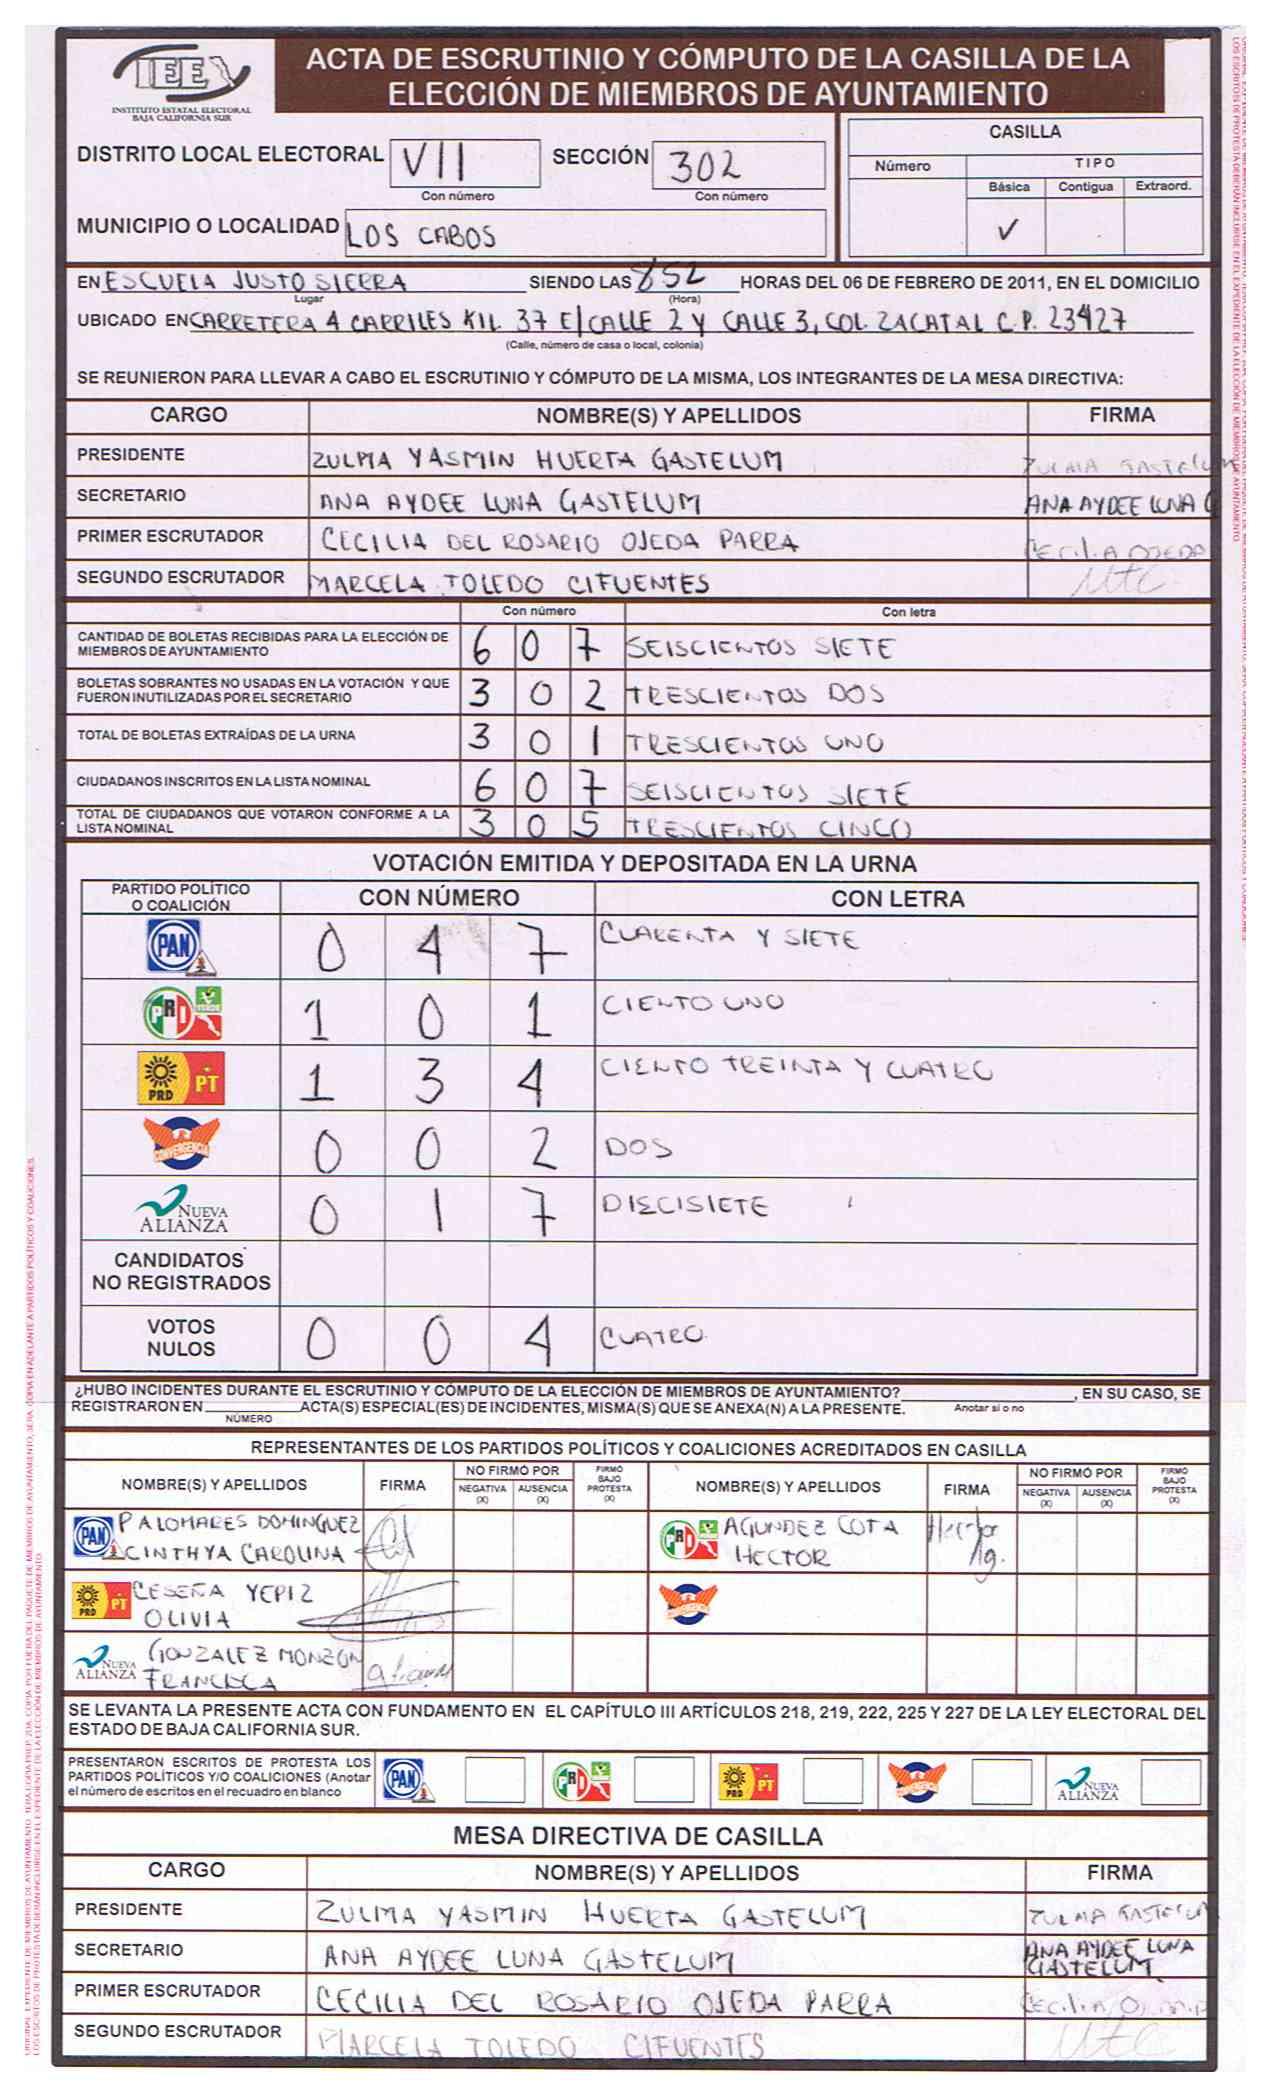 IEE
INSTITUTO ESTATAL ELECTORAL
BAJA CALIFORNIA SUR
ACTA DE ESCRUTINIO Y CÓMPUTO DE LA CASILLA DE LA
ELECCIÓN DE MIEMBROS DE AYUNTAMIENTO
DISTRITO LOCAL ELECTORAL VII SECCIÓN 302
Con número Con número
MUNICIPIO O LOCALIDAD LOS CABOS
CASILLA
Número TIPO
Básica Contigua Extraord.
✓
EN ESCUELA JUSTO SIERRA SIENDO LAS 852 HORAS DEL 06 DE FEBRERO DE 2011, EN EL DOMICILIO
Lugar (Hora)
UBICADO EN CARRETERA 4 CARRILES KIL 37 E/CALLE 2 Y CALLE 3, COL. ZACATAL C.P. 23427
(Calle, número de casa o local, colonia)
SE REUNIERON PARA LLEVAR A CABO EL ESCRUTINIO Y CÓMPUTO DE LA MISMA, LOS INTEGRANTES DE LA MESA DIRECTIVA:
CARGO NOMBRE(S) Y APELLIDOS FIRMA
PRESIDENTE ZULMA YASMIN HUERTA GASTELUM ZULMA GASTELUM
SECRETARIO ANA AYDEE LUNA GASTELUM ANA AYDEE LUNA G
PRIMER ESCRUTADOR CECILIA DEL ROSARIO OJEDA PARRA CECILIA OJEDA
SEGUNDO ESCRUTADOR MARCELA TOLEDO CIFUENTES MTC
Con número Con letra
CANTIDAD DE BOLETAS RECIBIDAS PARA LA ELECCIÓN DE
MIEMBROS DE AYUNTAMIENTO 6 0 7 SEISCIENTOS SIETE
BOLETAS SOBRANTES NO USADAS EN LA VOTACIÓN Y QUE
FUERON INUTILIZADAS POR EL SECRETARIO 3 0 2 TRESCIENTOS DOS
TOTAL DE BOLETAS EXTRAÍDAS DE LA URNA 3 0 1 TRESCIENTOS UNO
CIUDADANOS INSCRITOS EN LA LISTA NOMINAL 6 0 7 SEISCIENTOS SIETE
TOTAL DE CIUDADANOS QUE VOTARON CONFORME A LA
LISTA NOMINAL 3 0 5 TRESCIENTOS CINCO
VOTACIÓN EMITIDA Y DEPOSITADA EN LA URNA
PARTIDO POLÍTICO
O COALICIÓN CON NÚMERO CON LETRA
PAN 0 4 7 CUARENTA Y SIETE
PRI VERDE 1 0 1 CIENTO UNO
PRD PT 1 3 4 CIENTO TREINTA Y CUATRO
CONVERGENCIA 0 0 2 DOS
NUEVA ALIANZA 0 1 7 DIECISIETE
CANDIDATOS
NO REGISTRADOS
VOTOS
NULOS 0 0 4 CUATRO
¿HUBO INCIDENTES DURANTE EL ESCRUTINIO Y CÓMPUTO DE LA ELECCIÓN DE MIEMBROS DE AYUNTAMIENTO? , EN SU CASO, SE
REGISTRARON EN ACTA(S) ESPECIAL(ES) DE INCIDENTES, MISMA(S) QUE SE ANEXA(N) A LA PRESENTE. Anotar sí o no
NÚMERO
REPRESENTANTES DE LOS PARTIDOS POLÍTICOS Y COALICIONES ACREDITADOS EN CASILLA
NOMBRE(S) Y APELLIDOS FIRMA NO FIRMÓ POR NEGATIVA (X) AUSENCIA (X) FIRMÓ BAJO PROTESTA (X) NOMBRE(S) Y APELLIDOS FIRMA NO FIRMÓ POR NEGATIVA (X) AUSENCIA (X) FIRMÓ BAJO PROTESTA (X)
PAN PALOMARES DOMINGUEZ
CINTHYA CAROLINA
PRI AGUNDEZ COTA
HECTOR Hector Ag.
PRD PT CESEÑA YEPIZ
OLIVIA
CONVERGENCIA
NUEVA ALIANZA GONZALEZ MONZON
FRANCISCA
SE LEVANTA LA PRESENTE ACTA CON FUNDAMENTO EN EL CAPÍTULO III ARTÍCULOS 218, 219, 222, 225 Y 227 DE LA LEY ELECTORAL DEL
ESTADO DE BAJA CALIFORNIA SUR.
PRESENTARON ESCRITOS DE PROTESTA LOS
PARTIDOS POLÍTICOS Y/O COALICIONES (Anotar
el número de escritos en el recuadro en blanco
PAN PRI PRD PT CONVERGENCIA NUEVA ALIANZA
MESA DIRECTIVA DE CASILLA
CARGO NOMBRE(S) Y APELLIDOS FIRMA
PRESIDENTE ZULMA YASMIN HUERTA GASTELUM ZULMA GASTELUM
SECRETARIO ANA AYDEE LUNA GASTELUM ANA AYDEE LUNA
GASTELUM
PRIMER ESCRUTADOR CECILIA DEL ROSARIO OJEDA PARRA
SEGUNDO ESCRUTADOR MARCELA TOLEDO CIFUENTES MTC